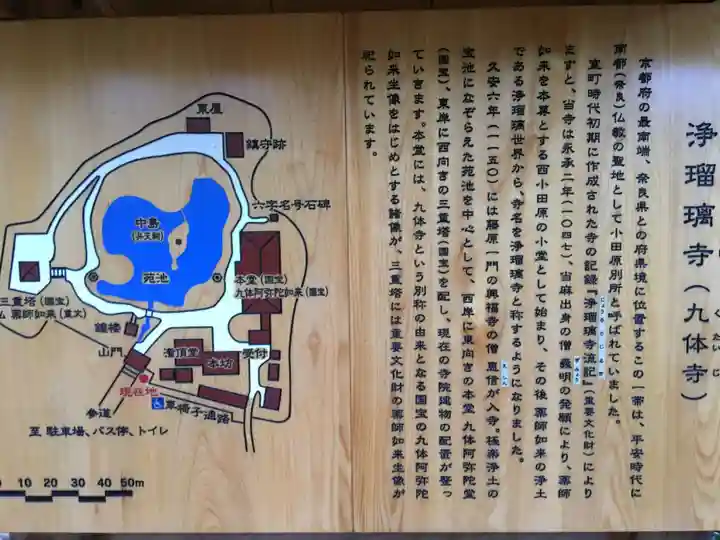 浄瑠璃寺(九体寺)
くたいじ
京都府の最南端、奈良県との府県境に位置するこの一帯は、平安時代に
南都(奈良)仏教の聖地として小田原別所と呼ばれていました。
室町時代初期に作成された寺の記録『浄瑠璃寺流記』(重要文化財)により
じょうるりじるき
ますと、当寺は永承二年(一〇四七)、当麻出身の僧 義明の発願により、薬師
ぎみょう
如来を本尊とする西小田原の小堂として始まり、その後 薬師如来の浄土
である浄瑠璃世界から、寺名を浄瑠璃寺と称するようになりました。
久安六年(一一五〇)には藤原一門の興福寺の僧 恵信が入寺。極楽浄土の
えしん
宝池になぞらえた苑池を中心として、西岸に東向きの本堂 九体阿弥陀堂
(国宝)、東岸に西向きの三重塔(国宝)を配し、現在の寺院建物の配置が整っ
ていきます。本堂には、九体寺という別称の由来となる国宝の九体阿弥陀
如来坐像をはじめとする諸像が、三重塔には重要文化財の薬師如来坐像が
祀られています。
東屋
鎮守跡
六字名号石碑
中島
(弁天祠)
苑池
本堂(国宝)
九体阿弥陀如来(国宝)
三重塔(国宝)
仏 薬師如来(重文)
鐘楼
山門
潅頂堂
本坊
受付
現在地
車椅子通路
参道
至 駐車場、バス停、トイレ
0 10 20 30 40 50m